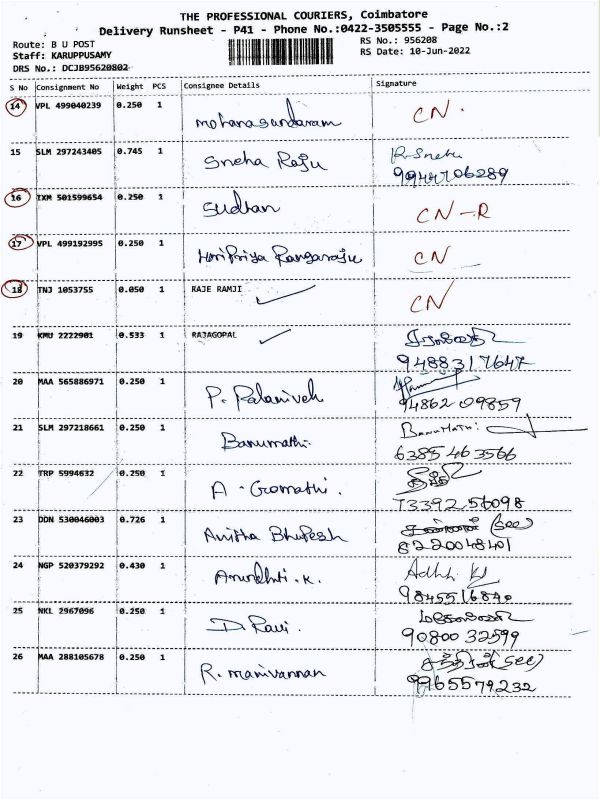 THE PROFESSIONAL COURIERS, Coimbatore
Delivery Runsheet - P41 - Phone No.:0422-3505555 - Page No.:2
Route: B U POST
RS No.: 956208
Staff: KARUPPUSAMY
RS Date: 10-Jun-2022
DRS No.: DCJB95620802
S No Consignment No Weight PCS Consignee Details Signature
14 VPL 499040239 0.250 1 mohanasundaram CN.
15 SLM 297243405 0.745 1 Sneha Raju R. Sneha
9944706289
16 TXM 501599654 0.250 1 Sudhan CN-R
17 VPL 499192995 0.250 1 HariPriya Rangaraju CN
18 TNJ 1053755 0.050 1 RAJE RAMJI CN
19 KMU 2222901 0.533 1 RAJAGOPAL
9488317647
20 MAA 565886971 0.250 1 P. Palanivel
94862 09859
21 SLM 297218661 0.250 1 Banumathi. Banumathi
6385 463566
22 TRP 5994632 0.250 1 A - Gomathi.
73392 56098
23 DDN 530046003 0.726 1 Anitha Bhupesh (See)
8220048401
24 NGP 520379292 0.430 1
25 NKL 2967096 0.250 1 D. Ravi.
90800 32599
26 MAA 288105678 0.250 1 R. manivannan
9965579232